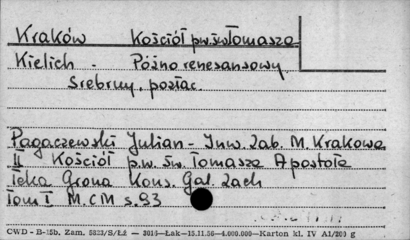 Kraków Kościół pw. św. Tomasza
Kielich - Późno renesansowy
Srebrny. pozłac.
Pagaczewski Julian - Inw. Zab. M. Krakowa
II Kościół p.w. św. Tomasza Apostoła
Teka Grona Kons. Gal. Zach
Tom I M.CM s. 93
CWD - B-15b, Zam. 5823/S/Łź — 3015—Łak—15.11.56—4.000.000—Karton kl. IV A1/200 g